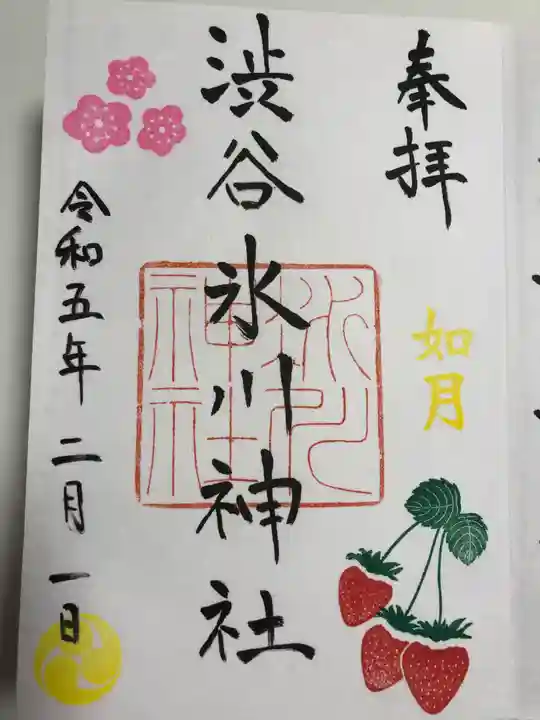 奉拝
如月
渋谷氷川神社
氷川
神社
令和五年二月一日